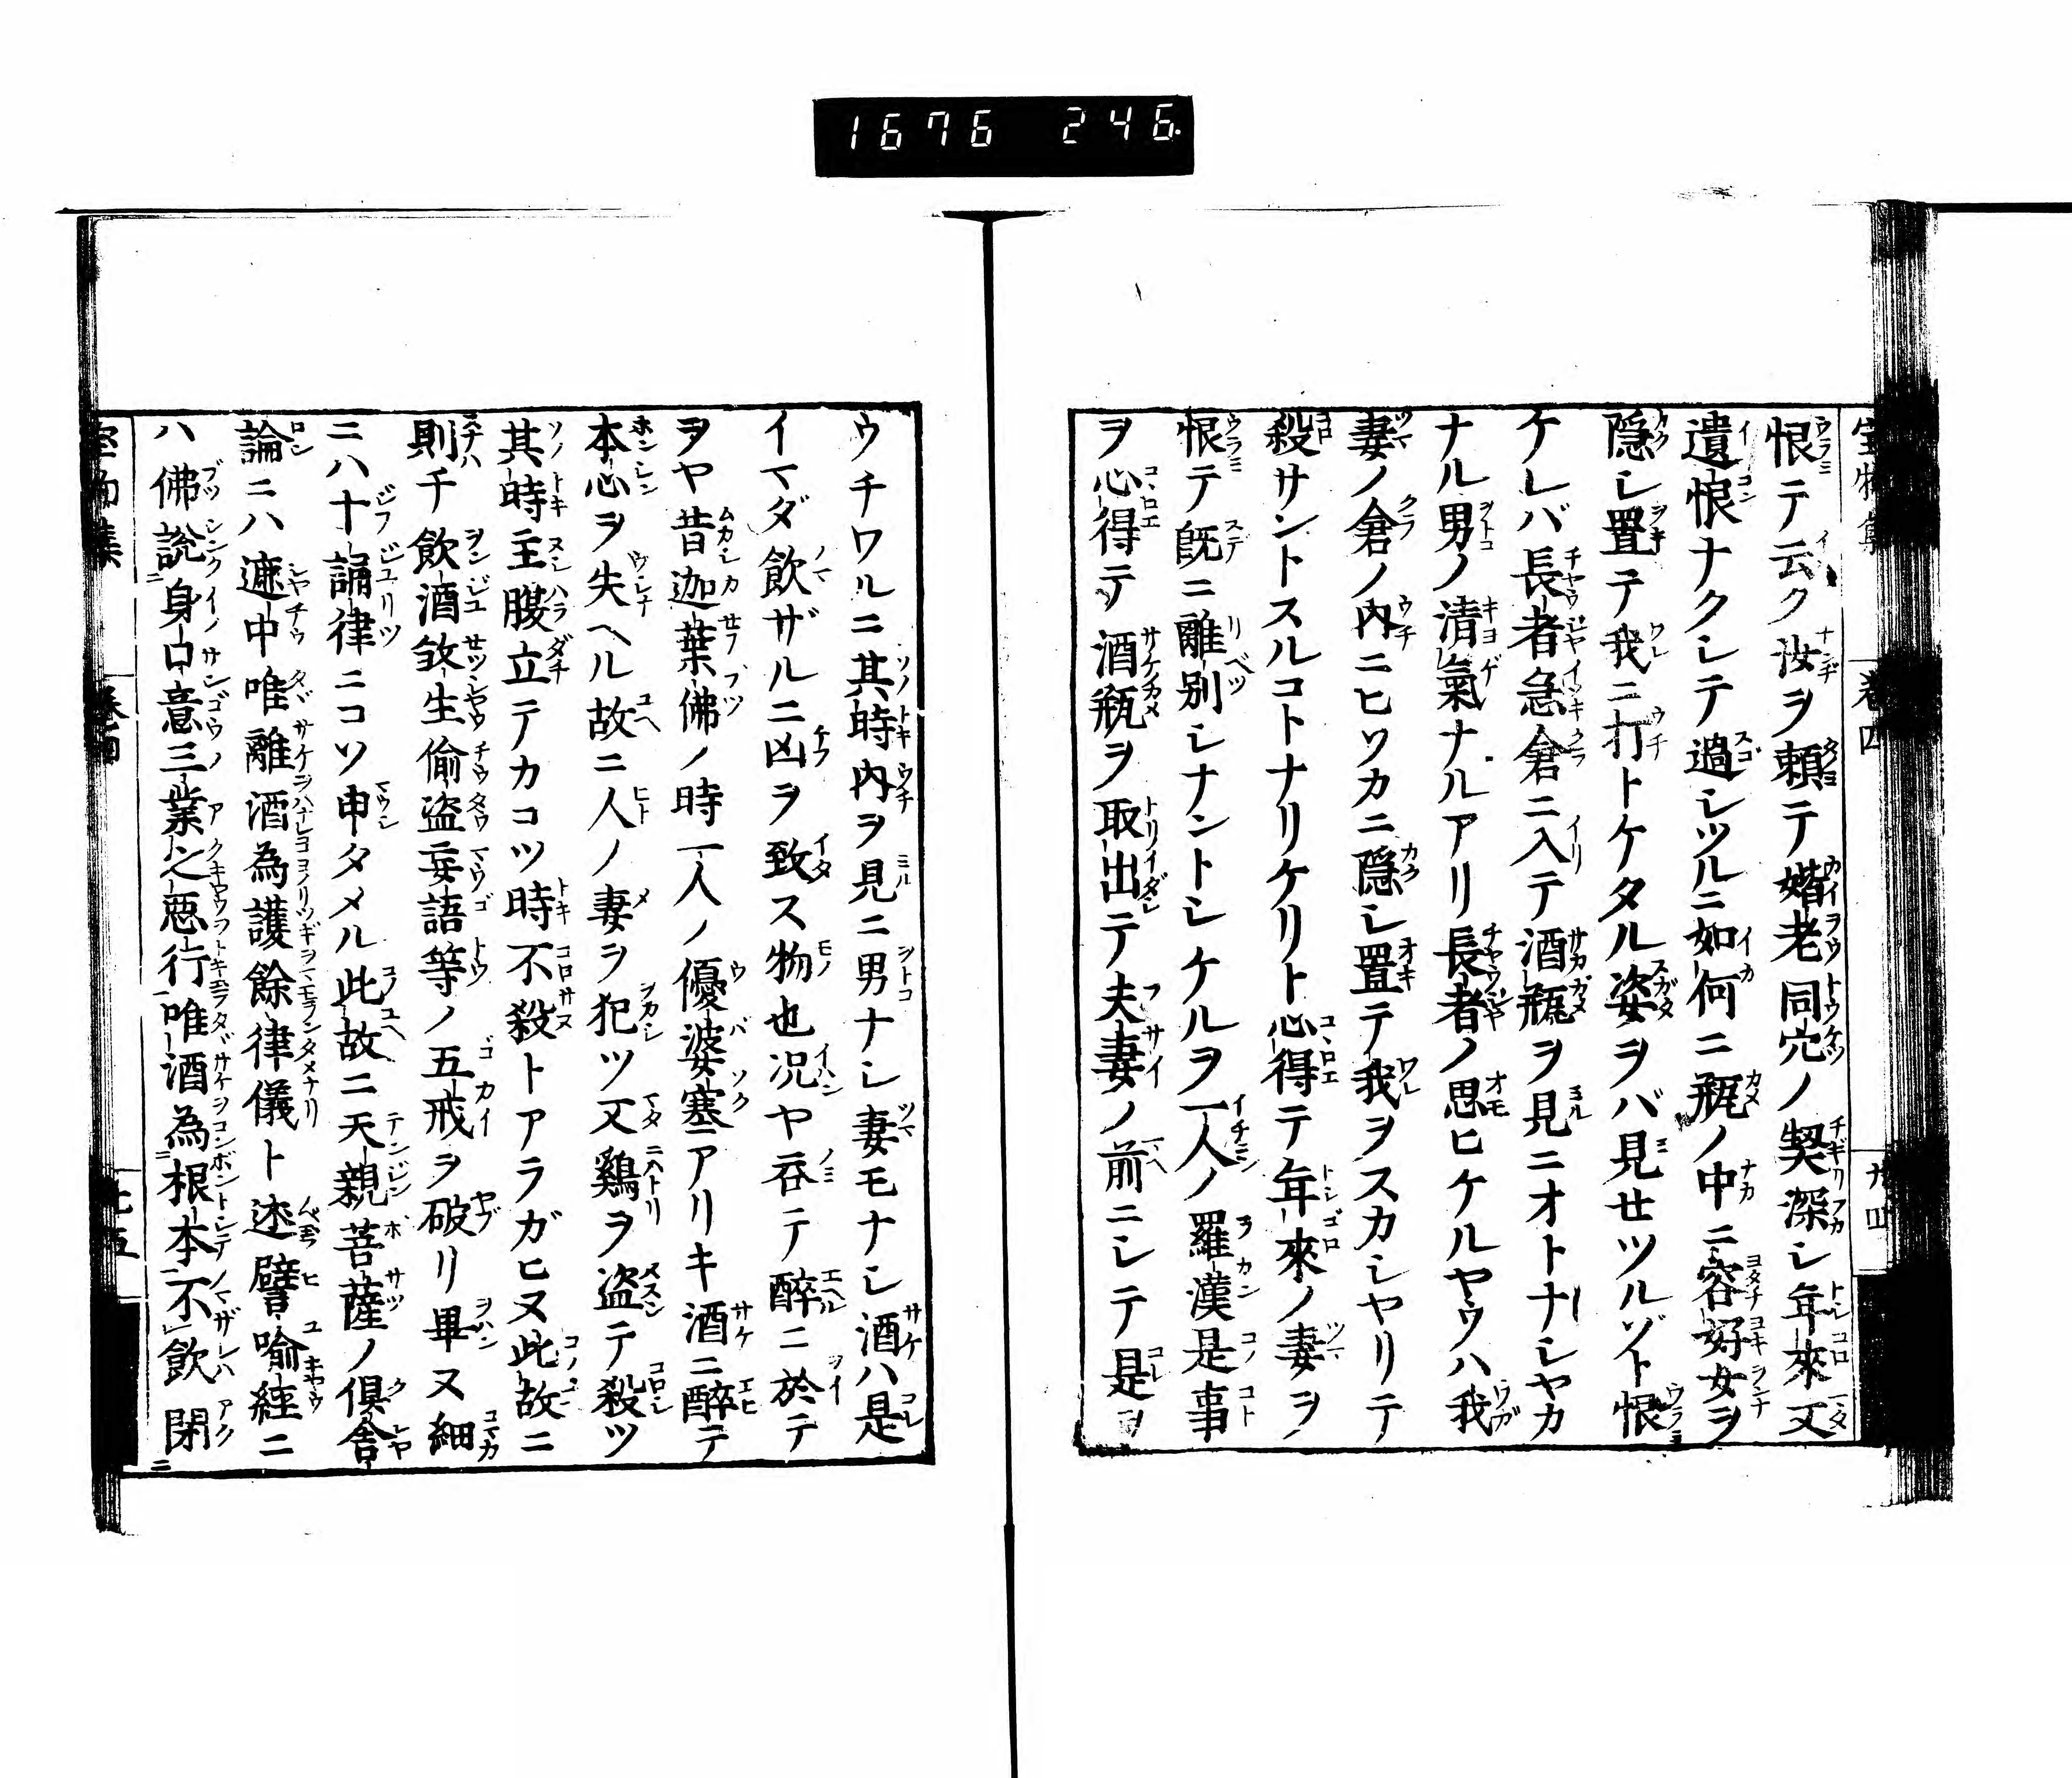 1676 246
恨テ云ク汝ヲ頼テ婚老同穴ノ契深シ年來又
遺恨ナクシテ過シツルニ如何ニ瓶ノ中ニ容好女ヲ
隱シ置テ我ニ打トケタル姿ヲバ見せツルゾト恨
ケレバ長者急倉ニ入テ酒瓶ヲ見ニオトナシヤカ
ナル男ノ清氣ナルアリ長者ノ思ヒケルヤウハ我
妻ノ倉ノ內ニヒソカニ隱シ置テ我ヲスカシヤリテ
殺サントスルコトナリケリト心得テ年來ノ妻ヲ
恨テ既ニ離別シナントシケルヲ一人ノ羅漢是事
ヲ心得テ酒瓶ヲ取出テ夫妻ノ前ニシテ是ヲ
ウチワルニ其時內ヲ見ニ男ナシ妻モナシ酒ハ是
イマダ飮ザルニ凶ヲ致ス物也况ヤ吞テ醉ニ於テ
ヲヤ昔迦葉佛ノ時一人ノ優婆塞アリキ酒ニ醉テ
本心ヲ失ヘル故ニ人ノ妻ヲ犯ツ又鷄ヲ盜テ殺ツ
其時主腹立テカコツ時不殺トアラガヒヌ此故ニ
則チ飮酒殺生偷盜妄語等ノ五戒ヲ破リ畢ヌ細
ニハ十誦律ニコソ申タメル此故ニ天親菩薩ノ倶舍
論ニハ遮中唯離酒為護餘律儀ト述譬喻經ニ
ハ佛說身口意三業之惡行唯酒為根本不飮閉